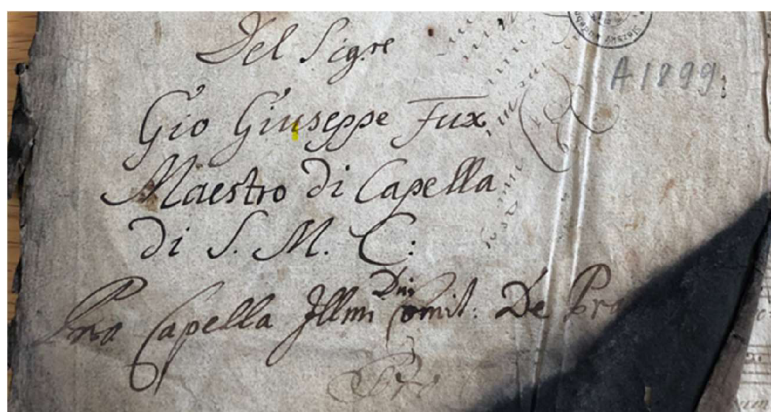 Del Sig.re
A 1899
Gio Giuseppe Fux
Maestro di Capella
di S. M. C:
Pro Capella Illmi Dni Comit. De